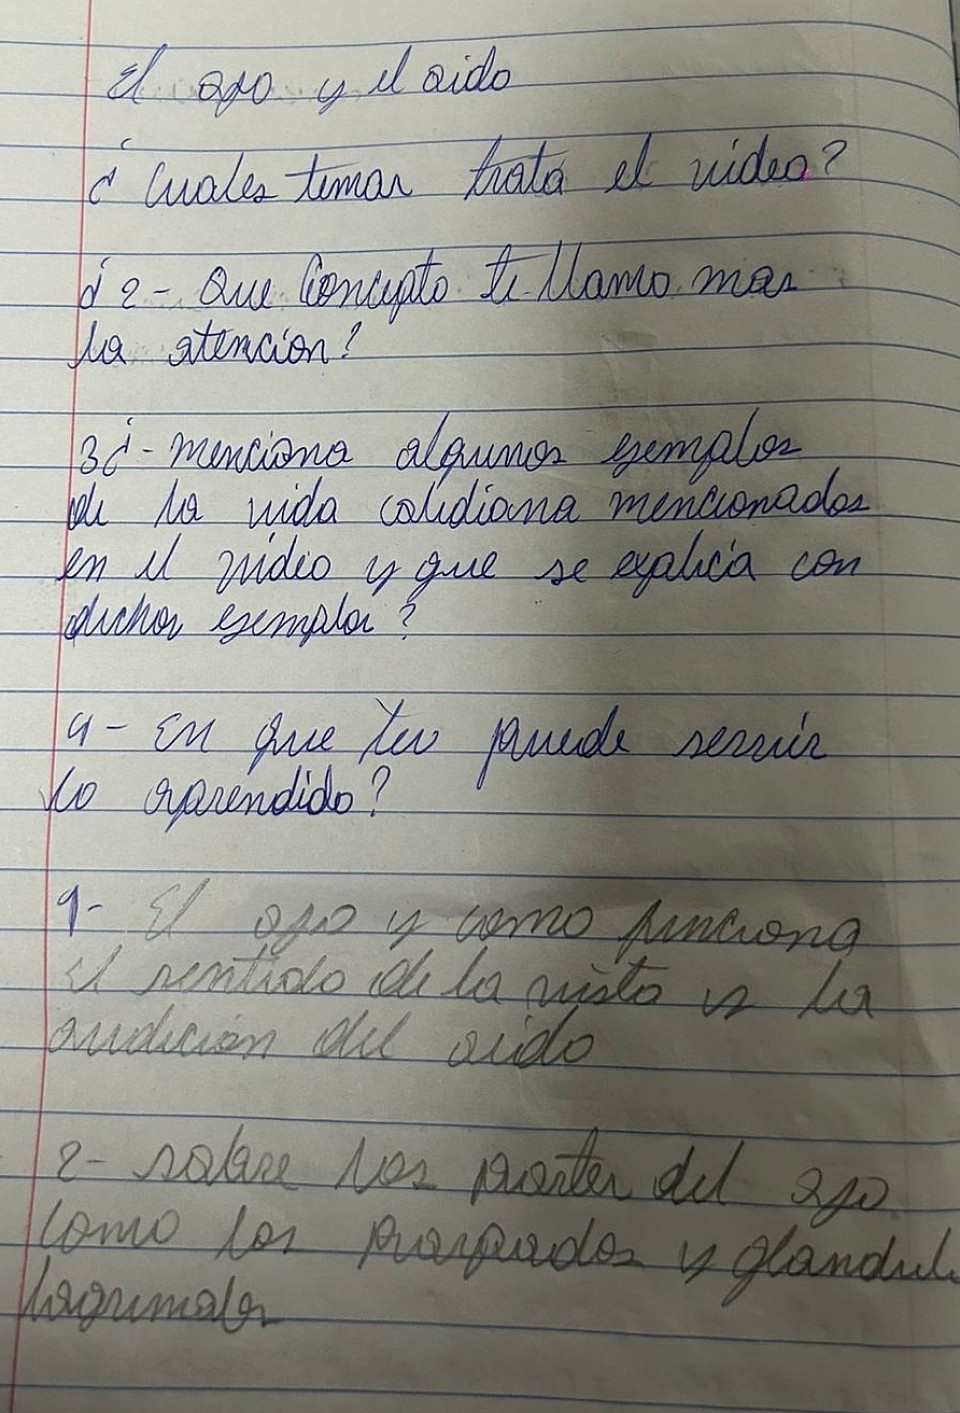 El ojo y el oido
¿ Cuales temas trata el video?
¿ 2- Que Concepto te llamo mas
la atencion?
3¿- menciona algunos ejemplos
de la vida cotidiana mencionados
en el video y que se explica con
dichos ejemplos?
4- En que te puede servir
lo aprendido?
1- El ojo y como funciona
El sentido de la vista y la
audicion del oido
2- sobre las partes del ojo
como los parpados y glandul
lagrimales